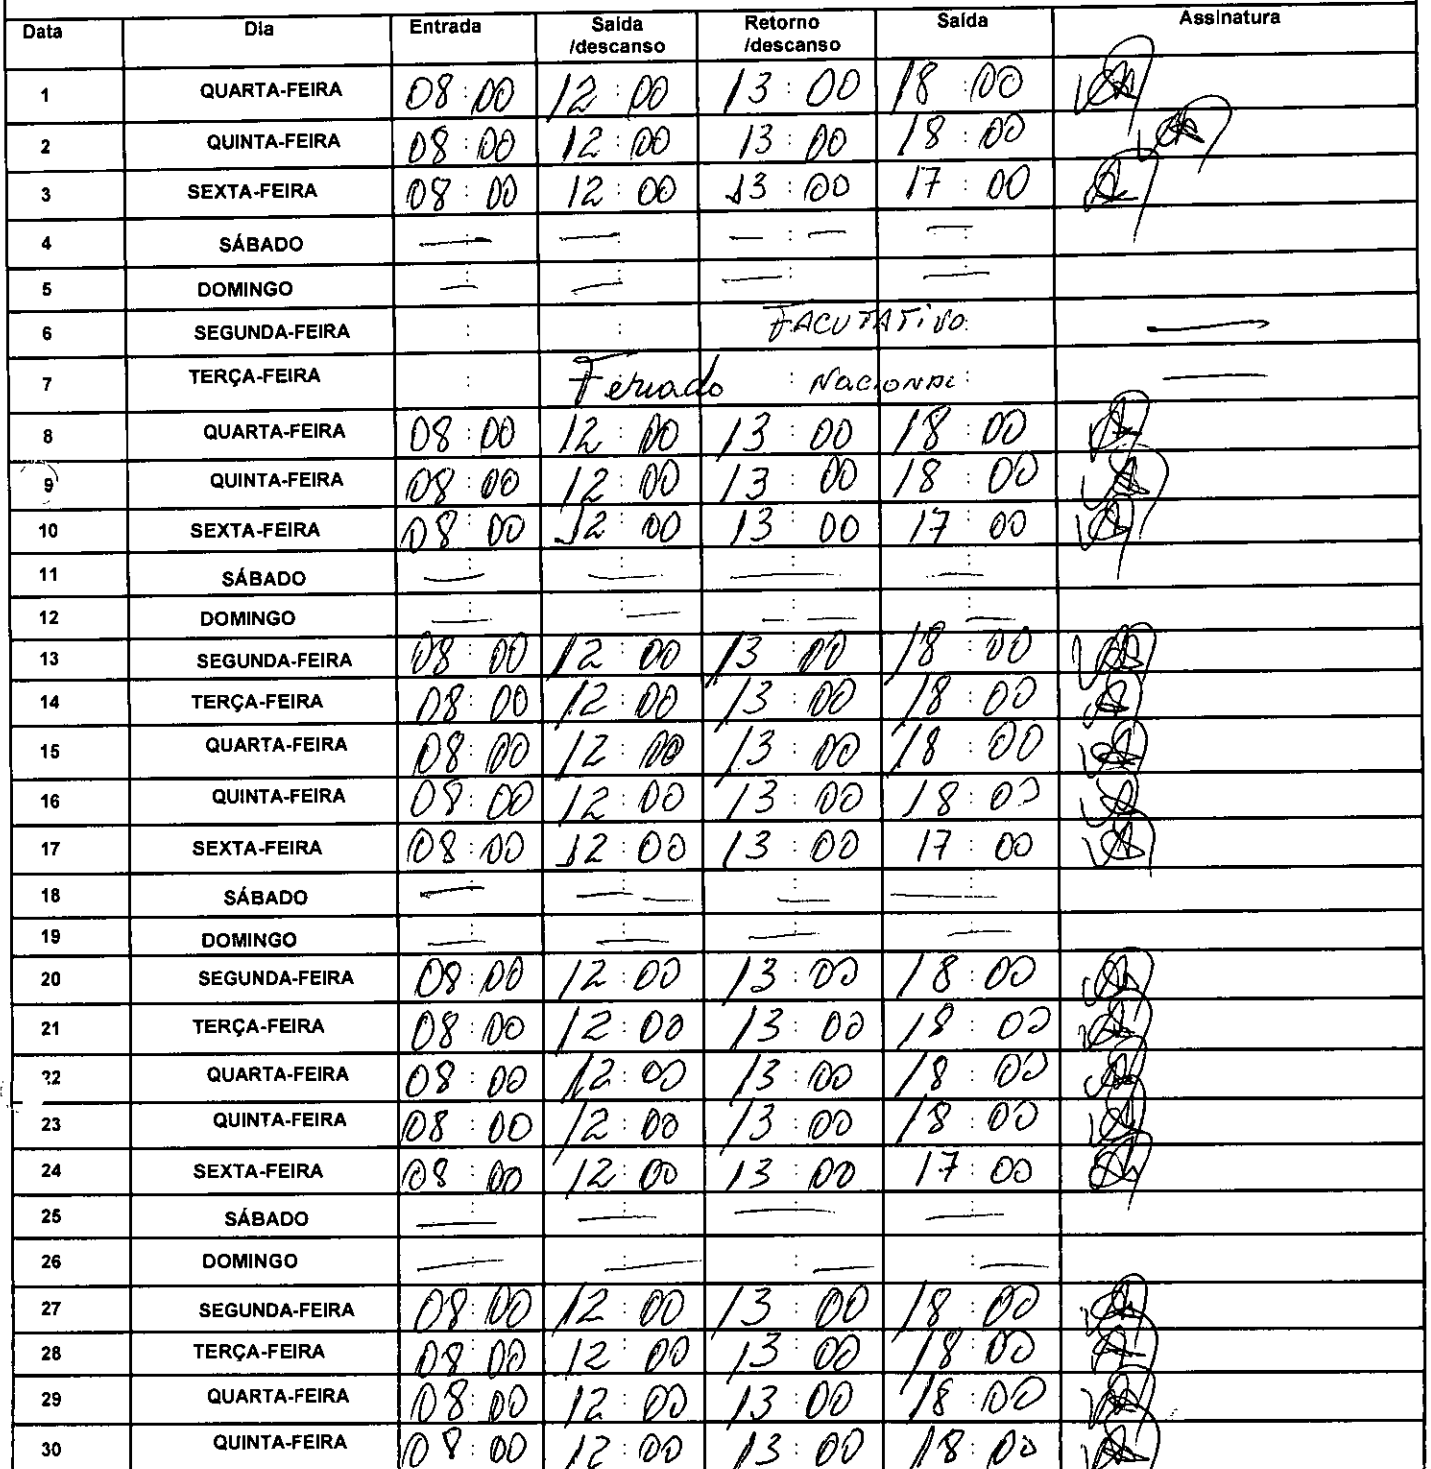 Data Dia Entrada Saída /descanso Retorno /descanso Saída Assinatura
1 QUARTA-FEIRA 08:00 12:00 13:00 18:00
2 QUINTA-FEIRA 08:00 12:00 13:00 18:00
3 SEXTA-FEIRA 08:00 12:00 13:00 17:00
4 SÁBADO — — — — —
5 DOMINGO — — — —
6 SEGUNDA-FEIRA : : FACUTATIVO —
7 TERÇA-FEIRA : Feriado : Nacional : —
8 QUARTA-FEIRA 08:00 12:00 13:00 18:00
9 QUINTA-FEIRA 08:00 12:00 13:00 18:00
10 SEXTA-FEIRA 08:00 12:00 13:00 17:00
11 SÁBADO — — — —
12 DOMINGO — — — —
13 SEGUNDA-FEIRA 08:00 12:00 13:00 18:00
14 TERÇA-FEIRA 08:00 12:00 13:00 18:00
15 QUARTA-FEIRA 08:00 12:00 13:00 18:00
16 QUINTA-FEIRA 08:00 12:00 13:00 18:00
17 SEXTA-FEIRA 08:00 12:00 13:00 17:00
18 SÁBADO — — — —
19 DOMINGO — — — —
20 SEGUNDA-FEIRA 08:00 12:00 13:00 18:00
21 TERÇA-FEIRA 08:00 12:00 13:00 18:00
22 QUARTA-FEIRA 08:00 12:00 13:00 18:00
23 QUINTA-FEIRA 08:00 12:00 13:00 18:00
24 SEXTA-FEIRA 08:00 12:00 13:00 17:00
25 SÁBADO — — — —
26 DOMINGO — — — —
27 SEGUNDA-FEIRA 08:00 12:00 13:00 18:00
28 TERÇA-FEIRA 08:00 12:00 13:00 18:00
29 QUARTA-FEIRA 08:00 12:00 13:00 18:00
30 QUINTA-FEIRA 08:00 12:00 13:00 18:00